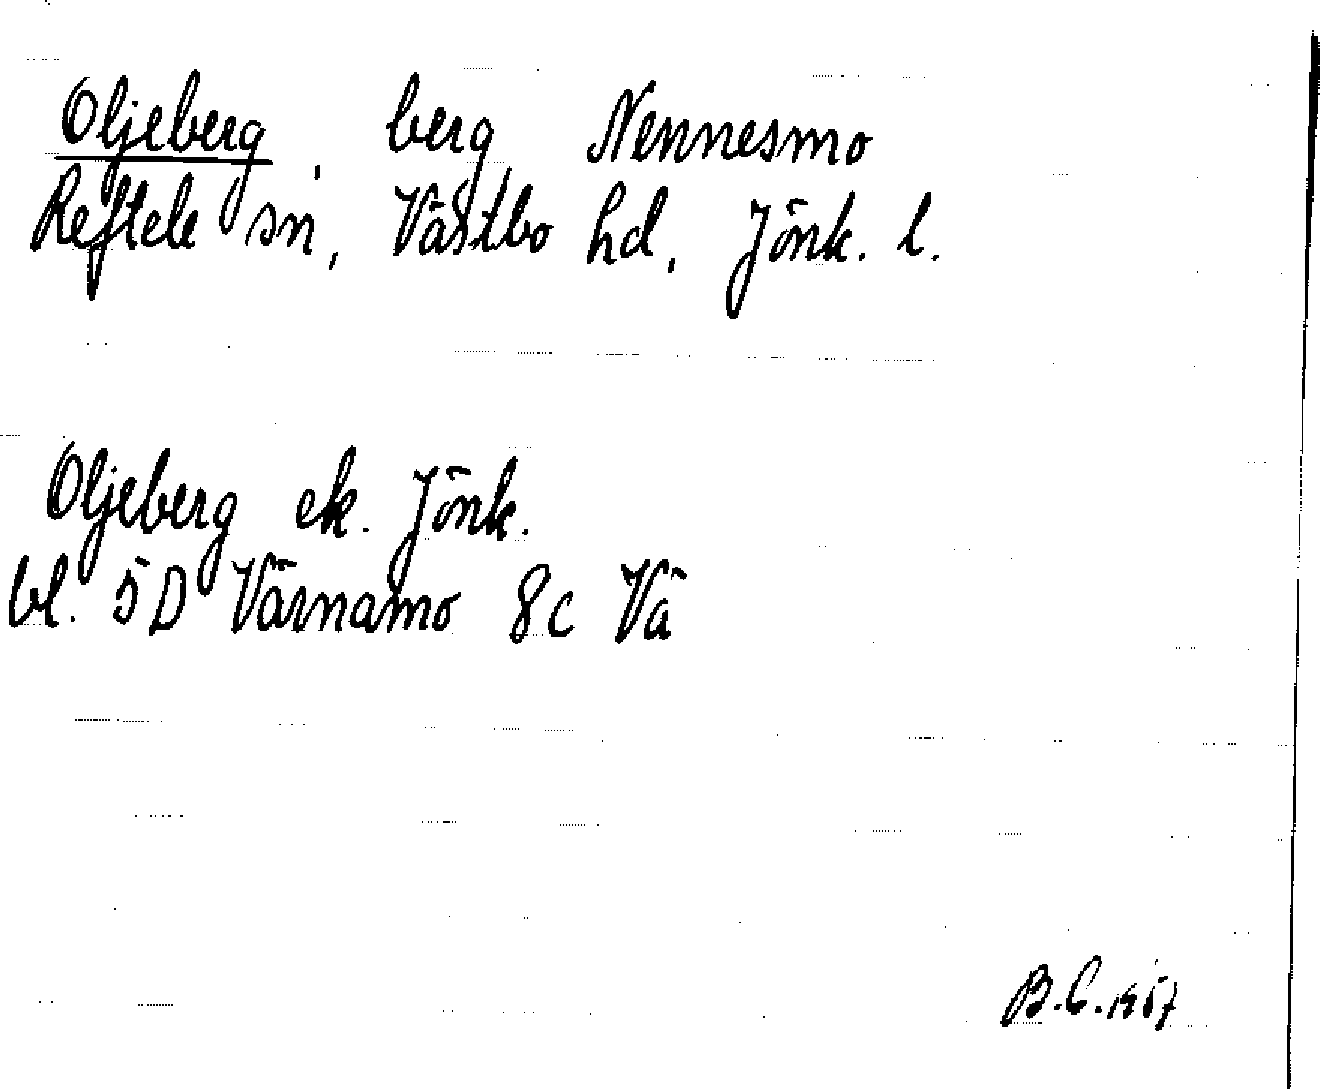 Oljeberg, berg, Nennesmo
Reftele sn, Västbo hd, Jönk. l.
Oljeberg ek. Jönk.
bl. 5D Värnamo 8c Vä
B.C. 1957